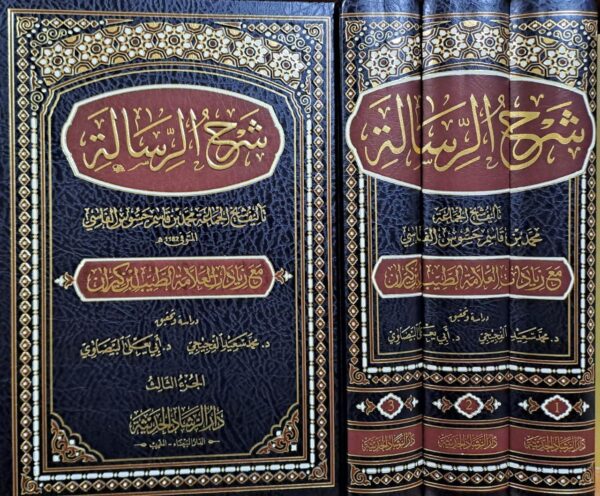 شرح الرسالة
تأليف الشيخ الجماعة محمد بن قاسم جسوس الفاسي
المتوفى 1182 هـ
مع زيادات العلامة الطيب ابن كيران
دراسة وتحقيق
د. محمد سعيد الفجيجي د. أبي يعلى البيضاوي
الجزء الثالث
دار الرشاد الحديثية
الدار البيضاء - المغرب
شرح الرسالة
تأليف الشيخ الجماعة
محمد بن قاسم جسوس الفاسي
مع زيادات العلامة الطيب ابن كيران
دراسة وتحقيق
د. محمد سعيد الفجيجي د. أبي يعلى البيضاوي
1 2 3
دار الرشاد الحديثية دار الرشاد الحديثية دار الرشاد الحديثية